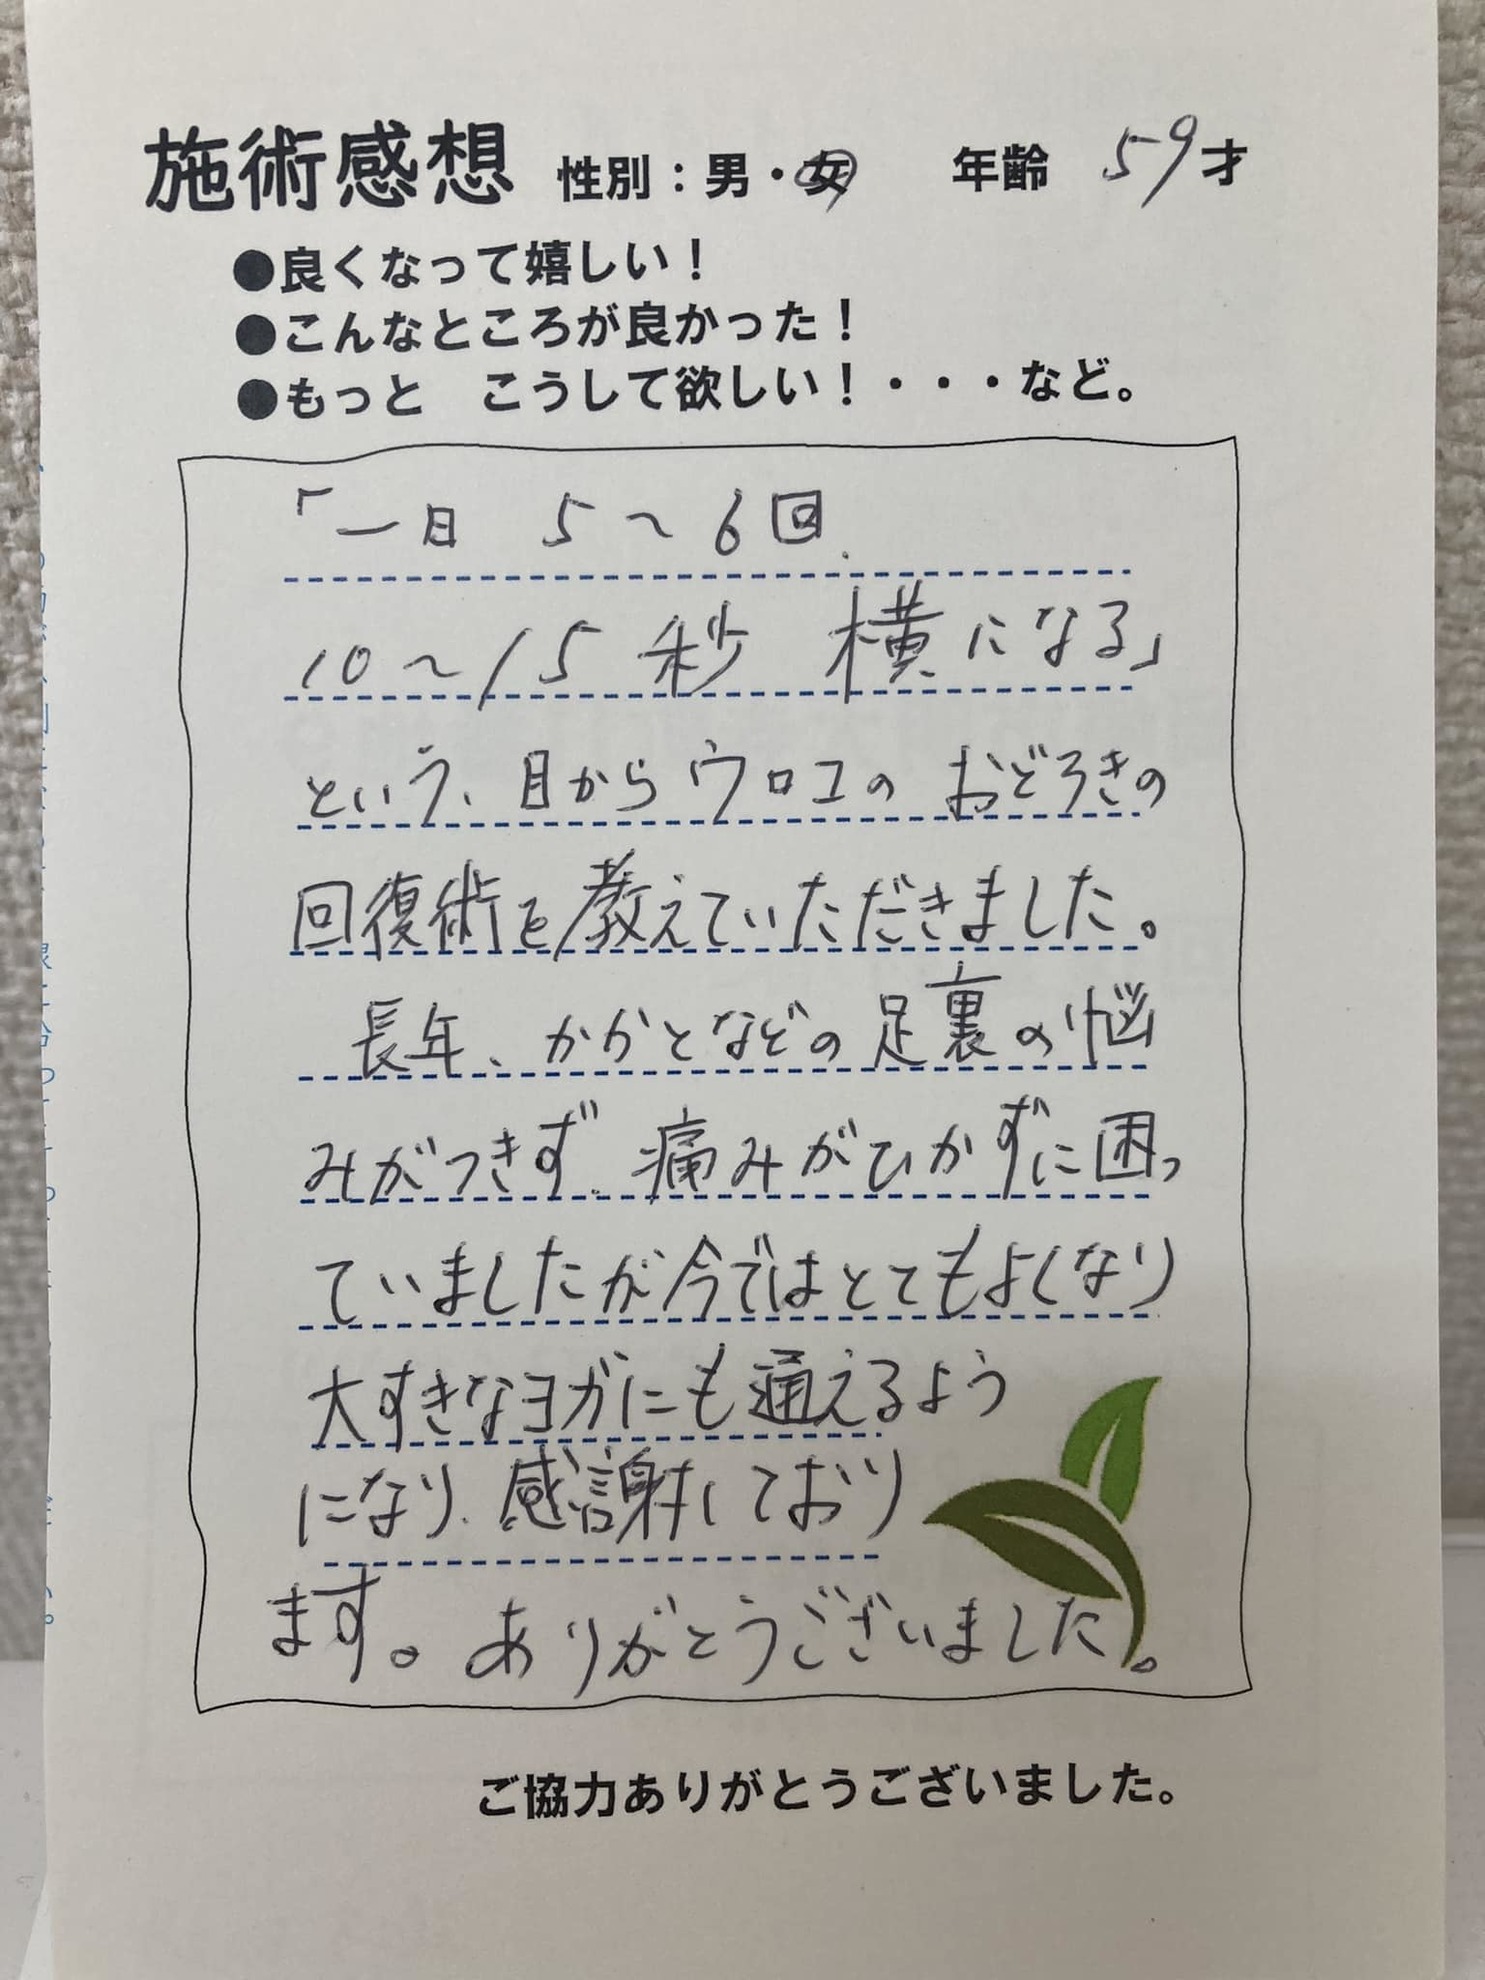 施術感想 性別：男・女 年齢 59才
●良くなって嬉しい！
●こんなところが良かった！
●もっと こうして欲しい！・・・など。
「一日 5～6回、
10～15秒 横になる」
という、目からウロコの おどろきの
回復術を教えていただきました。
長年、かかとなどの足裏の悩
みがつきず、痛みがひかずに困っ
ていましたが今ではとてもよくなり
大すきなヨガにも通えるよう
になり、感謝しており
ます。ありがとうございました。
ご協力ありがとうございました。